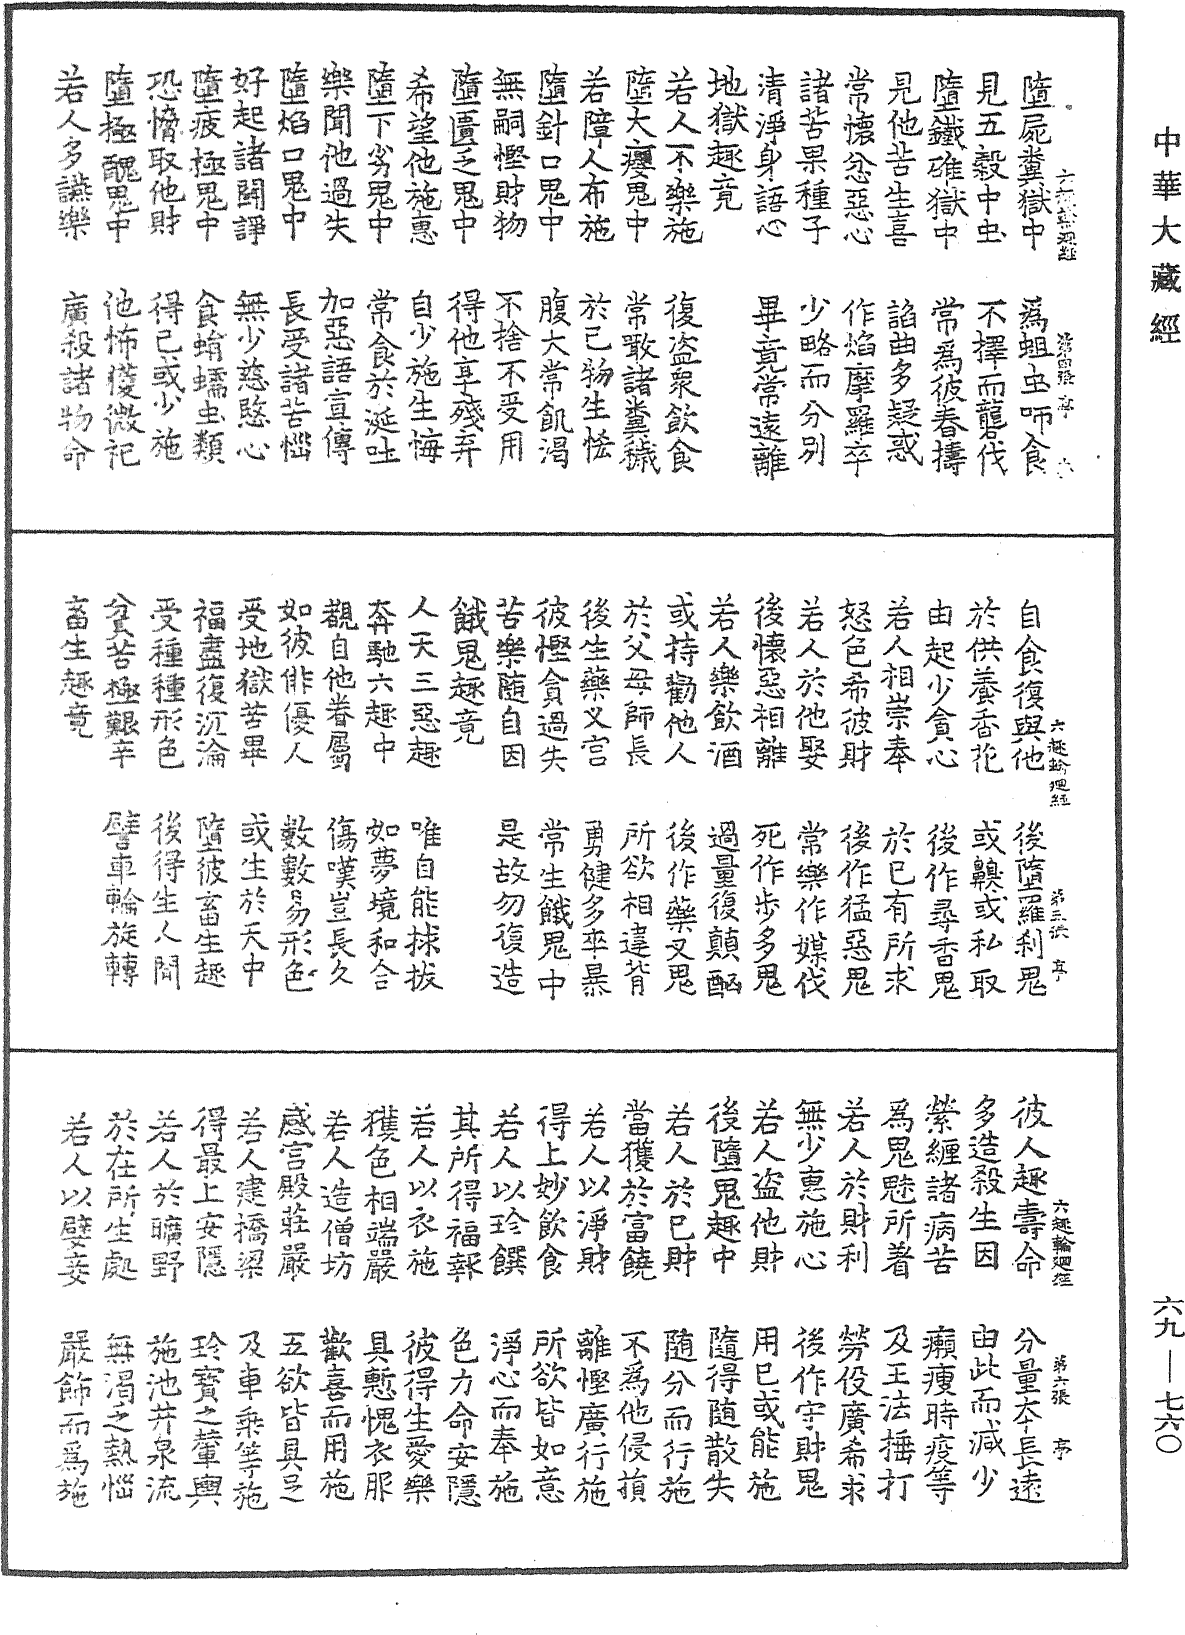 中華大藏經
墮屍糞獄中　為蛆虫唼食
六趣輪廻經　第四張　亭
見五穀中虫　不擇而礱伐
墮鐵碓獄中　常為彼舂擣
見他苦生喜　諂曲多疑惑
常懷忿惡心　作焰摩羅卒
諸苦果種子　少略而分別
清淨身語心　畢竟常遠離
地獄趣竟
若人不樂施　復盜衆飲食
墮大癭鬼中　常噉諸糞穢
若障人布施　於己物生恡
墮針口鬼中　腹大常飢渴
無嗣慳財物　不捨不受用
墮匱乏鬼中　得他享殘弃
希望他施惠　自少施生悔
墮下劣鬼中　常食於涎吐
樂聞他過失　加惡語宣傳
墮焰口鬼中　長受諸苦惱
好起諸鬪諍　無少慈愍心
墮疲極鬼中　食蛕蠕虫類
恐脅取他財　得已或少施
墮極醜鬼中　他怖獲微祀
若人多讌樂　廣殺諸物命
自食復與他　後墮羅刹鬼
六趣輪廻經　第五張　亭
於供養香花　或齅或私取
由起少貪心　後作尋香鬼
若人相崇奉　於已有所求
怒色希彼財　後作猛惡鬼
若人於他娶　常樂作媒伐
後懷惡相離　死作步多鬼
若人樂飲酒　過量復顛酗
或持勸他人　後作藥叉鬼
於父母師長　所欲相違背
後生藥叉宫　勇健多卒暴
彼慳貪過失　常生餓鬼中
苦樂隨自因　是故勿復造
餓鬼趣竟
人天三惡趣　唯自能捄拔
奔馳六趣中　如夢境和合
觀自他眷屬　傷嘆豈長久
如彼俳優人　數數易形色
受地獄苦畢　或生於天中
福盡復沉淪　墮彼畜生趣
受種種形色　後得生人間
貧苦極艱辛　譬車輪旋轉
畜生趣竟
彼人趣壽命　分量本長遠
六趣輪廻經　第六張　亭
多造殺生因　由此而減少
縈纏諸病苦　癩瘦時疫等
為鬼魅所着　及王法捶打
若人於財利　勞役廣希求
無少惠施心　後作守財鬼
若人盜他財　用已或能施
後墮鬼趣中　隨得隨散失
若人於已財　隨分而行施
當獲於富饒　不為他侵損
若人以淨財　離慳廣行施
得上妙飲食　所欲皆如意
若人以珍饌　淨心而奉施
其所得福報　色力命安隱
若人以衣施　彼得生愛樂
獲色相端嚴　具慙愧衣服
若人造僧坊　歡喜而用施
感宫殿莊嚴　五欲皆具足
若人建橋梁　及車乘等施
得最上安隱　珍寶之輦輿
若人於曠野　施池井泉流
於在所生處　無渴乏熱惱
若人以嬖妾　嚴飾而為施
六九—七六〇